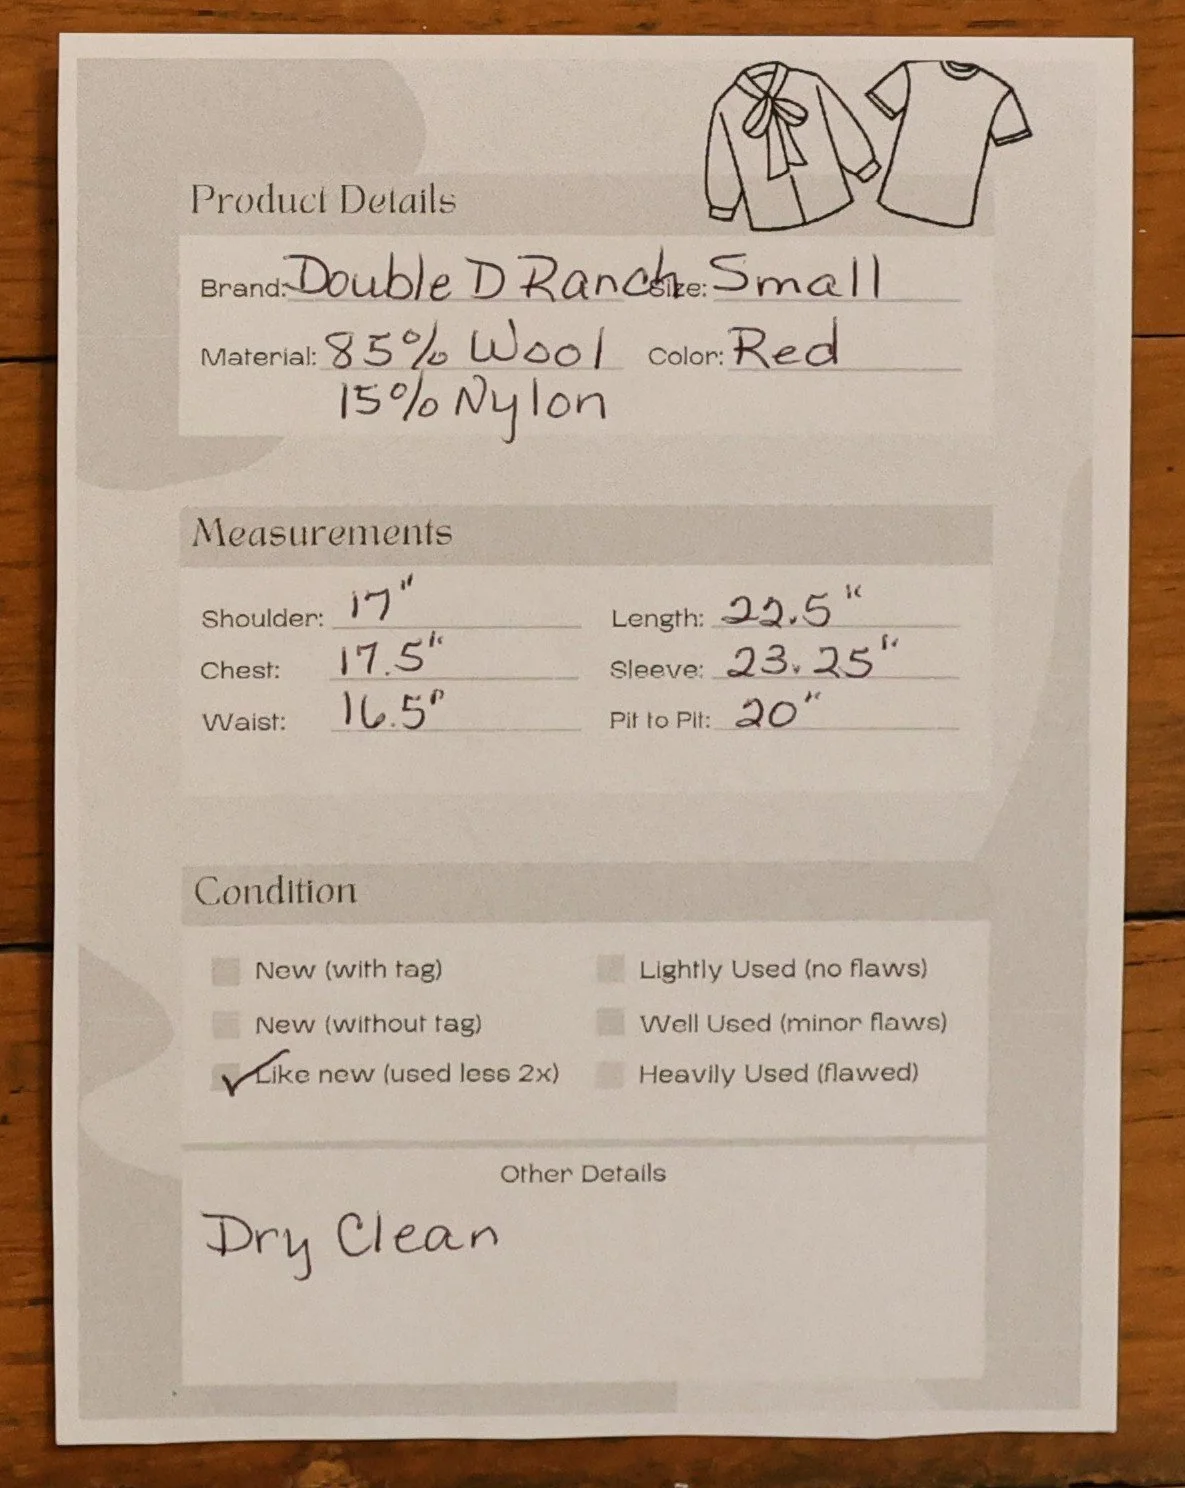 Product Details
Brand: Double D Ranch Size: Small
Material: 85% Wool Color: Red
15% Nylon
Measurements
Shoulder: 17" Length: 22.5"
Chest: 17.5" Sleeve: 23.25"
Waist: 16.5" Pit to Pit: 20"
Condition
New (with tag) Lightly Used (no flaws)
New (without tag) Well Used (minor flaws)
✓ Like new (used less 2x) Heavily Used (flawed)
Other Details
Dry Clean